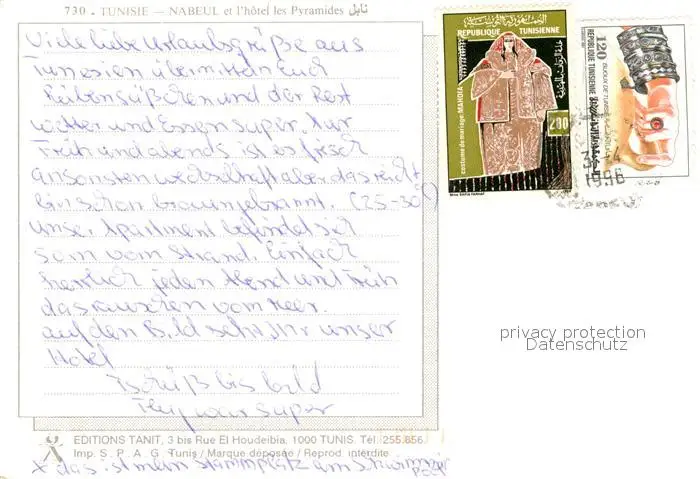 730 - TUNISIE — NABEUL et l'hôtel les Pyramides نابل
Viele liebe Urlaubsgrüße aus
Tunesien
und der Rest
wetter und Essen super. Nur
Früh und abends ist es frisch
ansonsten aber das reicht
bin schon braungebrannt. (25-30°)
Unser Apartment befindet sich
50m vom Strand. Einfach
herrlich jeden Abend und Früh
das Rauschen vom Meer.
auf dem Bild seht Ihr unser
Hotel
Tschüß bis bald
Flug war super
EDITIONS TANIT, 3 bis Rue El Houdeibia, 1000 TUNIS. Tél. 255.656
Imp. S. P. A. G. Tunis / Marque déposée / Reprod. interdite.
x das ist mein Stammplatz am Schwimmer
POOL
REPUBLIQUE TUNISIENNE
costume de mariage MAHDIA
200
120
BIJOUX DE TUNISIE
REPUBLIQUE TUNISIENNE
1996
privacy protection
Datenschutz